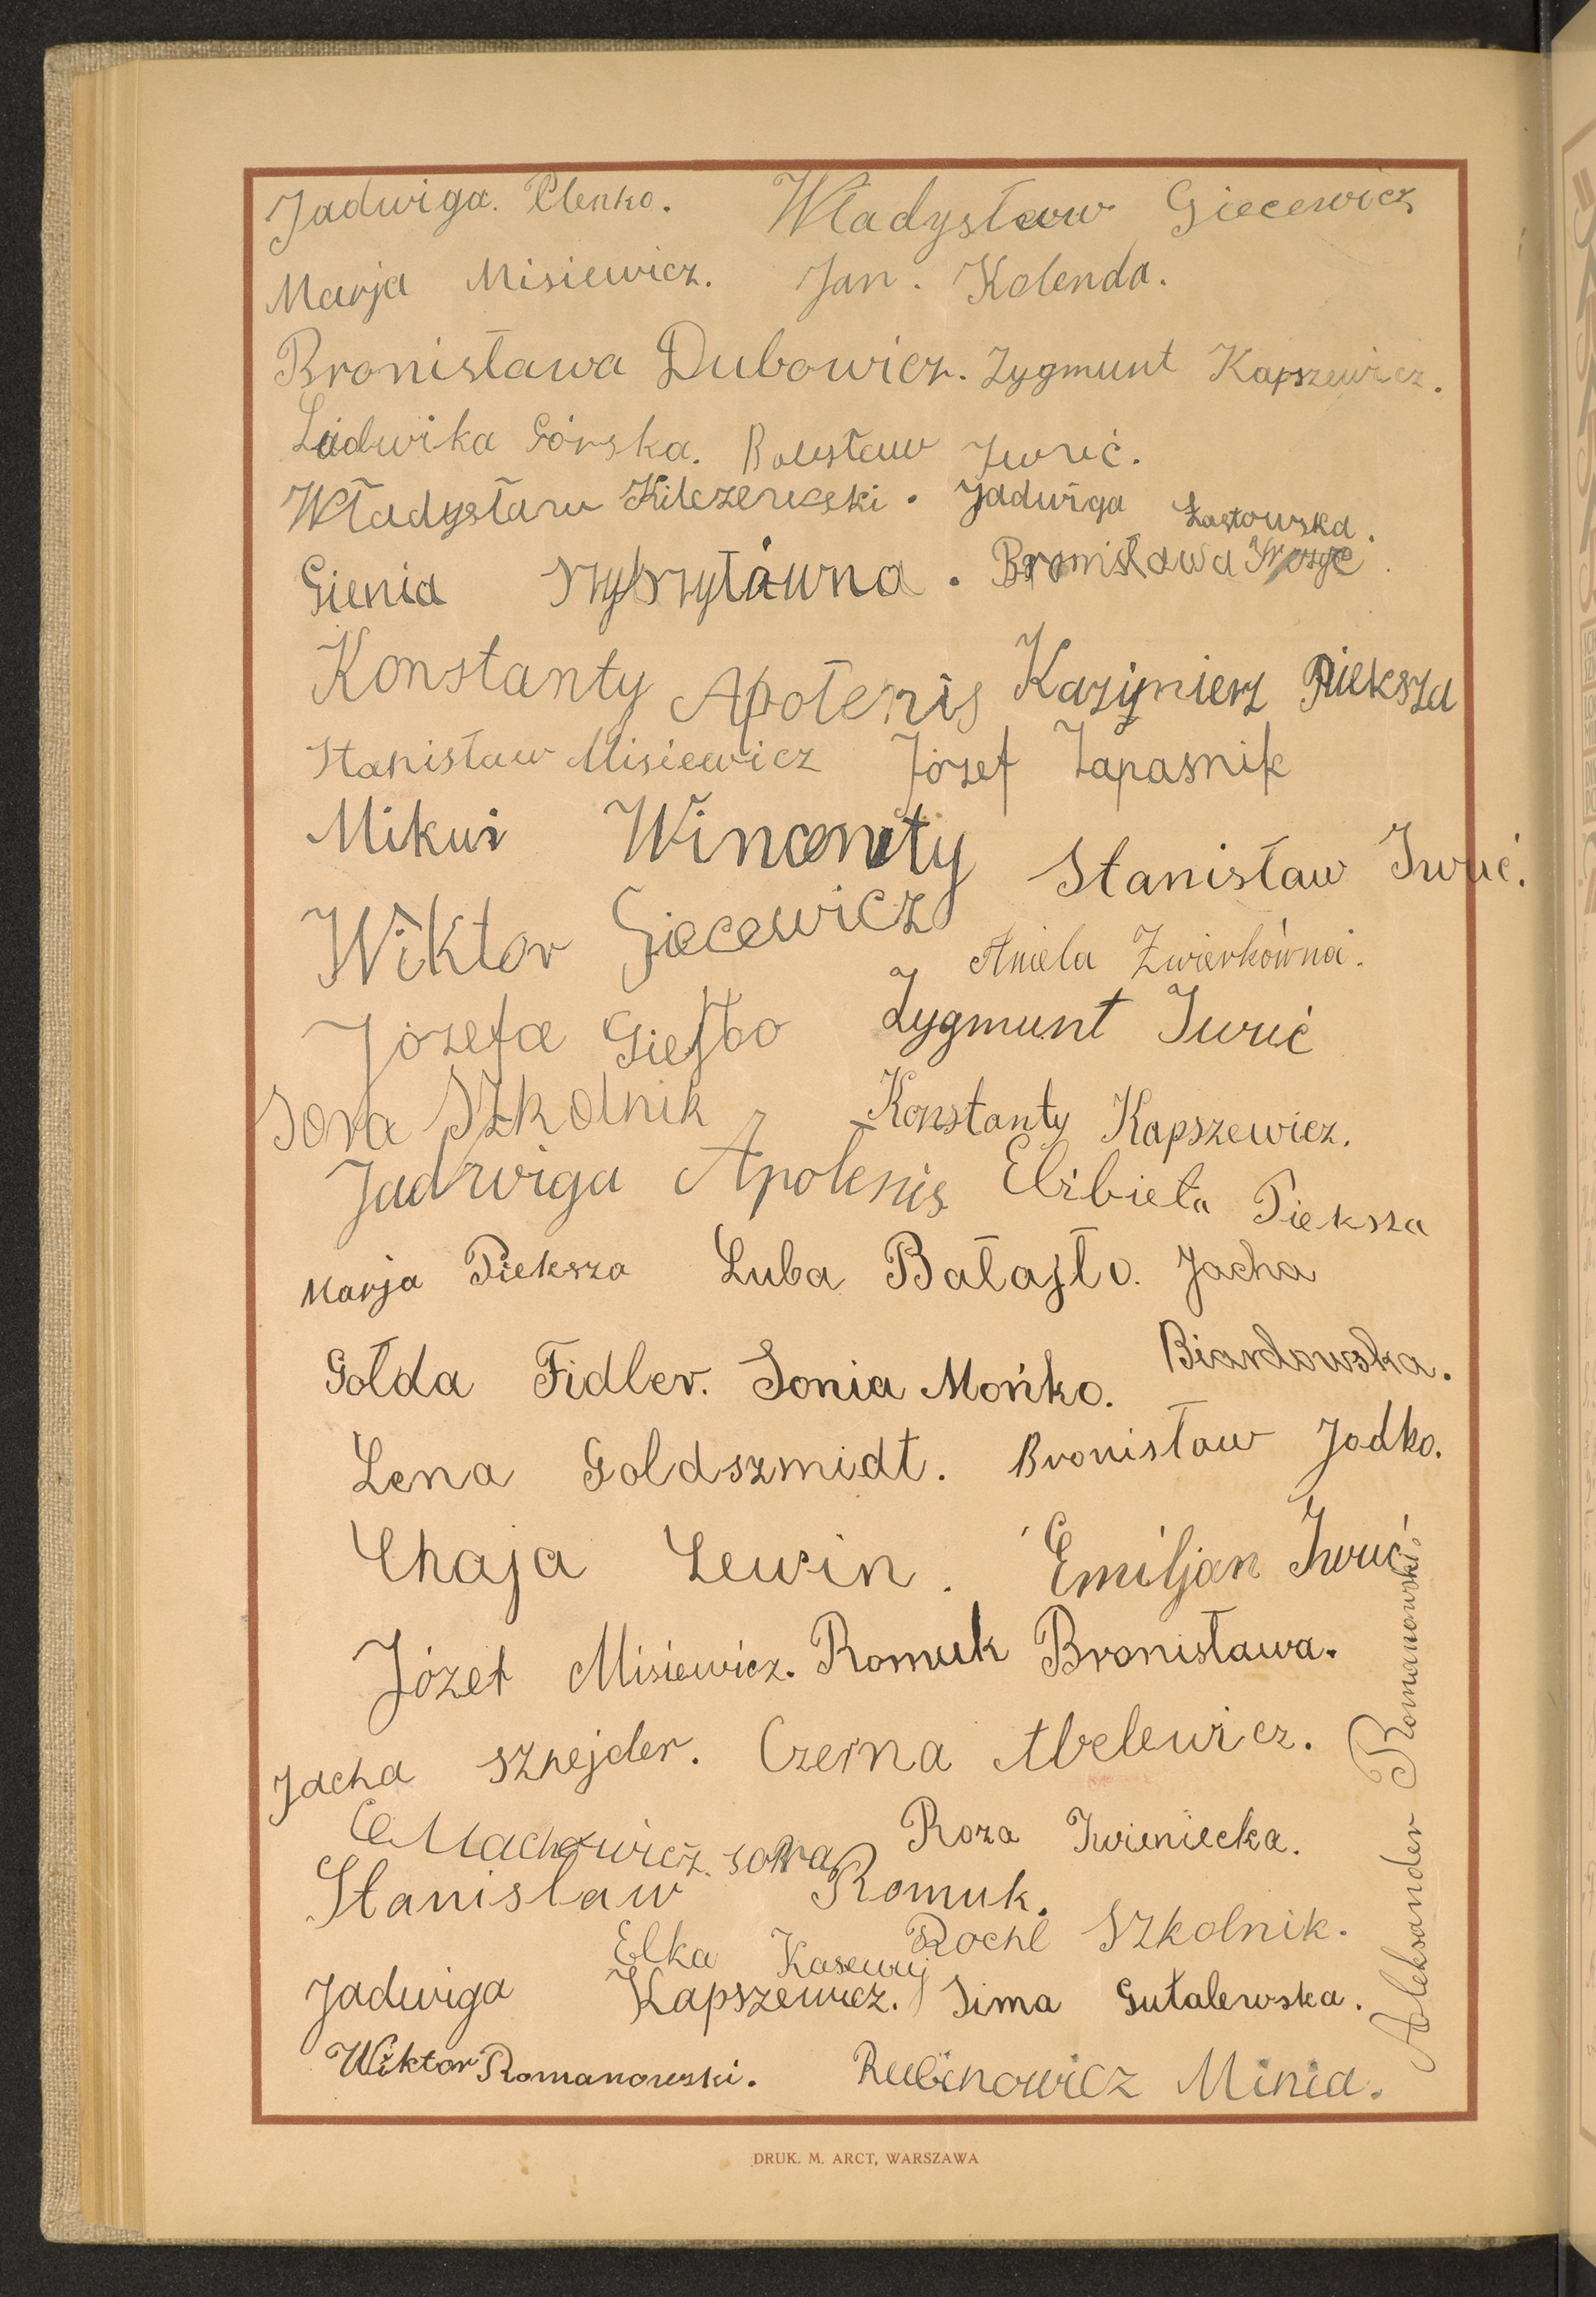 Jadwiga. Plenko. Władysław Giecewicz
Marja Misiewicz. Jan. Kolenda.
Bronisława Dubowicz. Zygmunt Kapszewicz.
Ludwika Górska. Bolesław Iwuć.
Władysław Kilczewski. Jadwiga Łastowska.
Gienia Szybszyłówna. Bronisława
Konstanty Apolenis Kazimierz Pieksza
Stanisław Misiewicz Józef Zapasnik
Mikuś Wincenty Stanisław Iwuć.
Wiktor Giecewicz Aniela Zwierkówna.
Józefa Giejbo Zygmunt Iwuć
Sora Szkolnik Konstanty Kapszewicz.
Jadwiga Apolenis Elżbieta Pieksza
Marja Pieksza Luba Bałajło. Jacha
Gołda Fidler. Sonia Mońko. Biardowska.
Lena Goldszmidt. Bronisław Jodko.
Chaja Lewin. Emiljan Iwuć.
Józef Misiewicz. Romuk Bronisława.
Jacha Sznejder. Czerna Abelewicz.
Roza Iwieniecka.
Machowicz. Sora
Stanisław Romuk.
Elka Rochl Szkolnik.
Jadwiga Kapszewicz. Sima Gutalewska.
Wiktor Romanowski. Rubinowicz Minia.
Aleksander Romanowski.
DRUK. M. ARCT, WARSZAWA